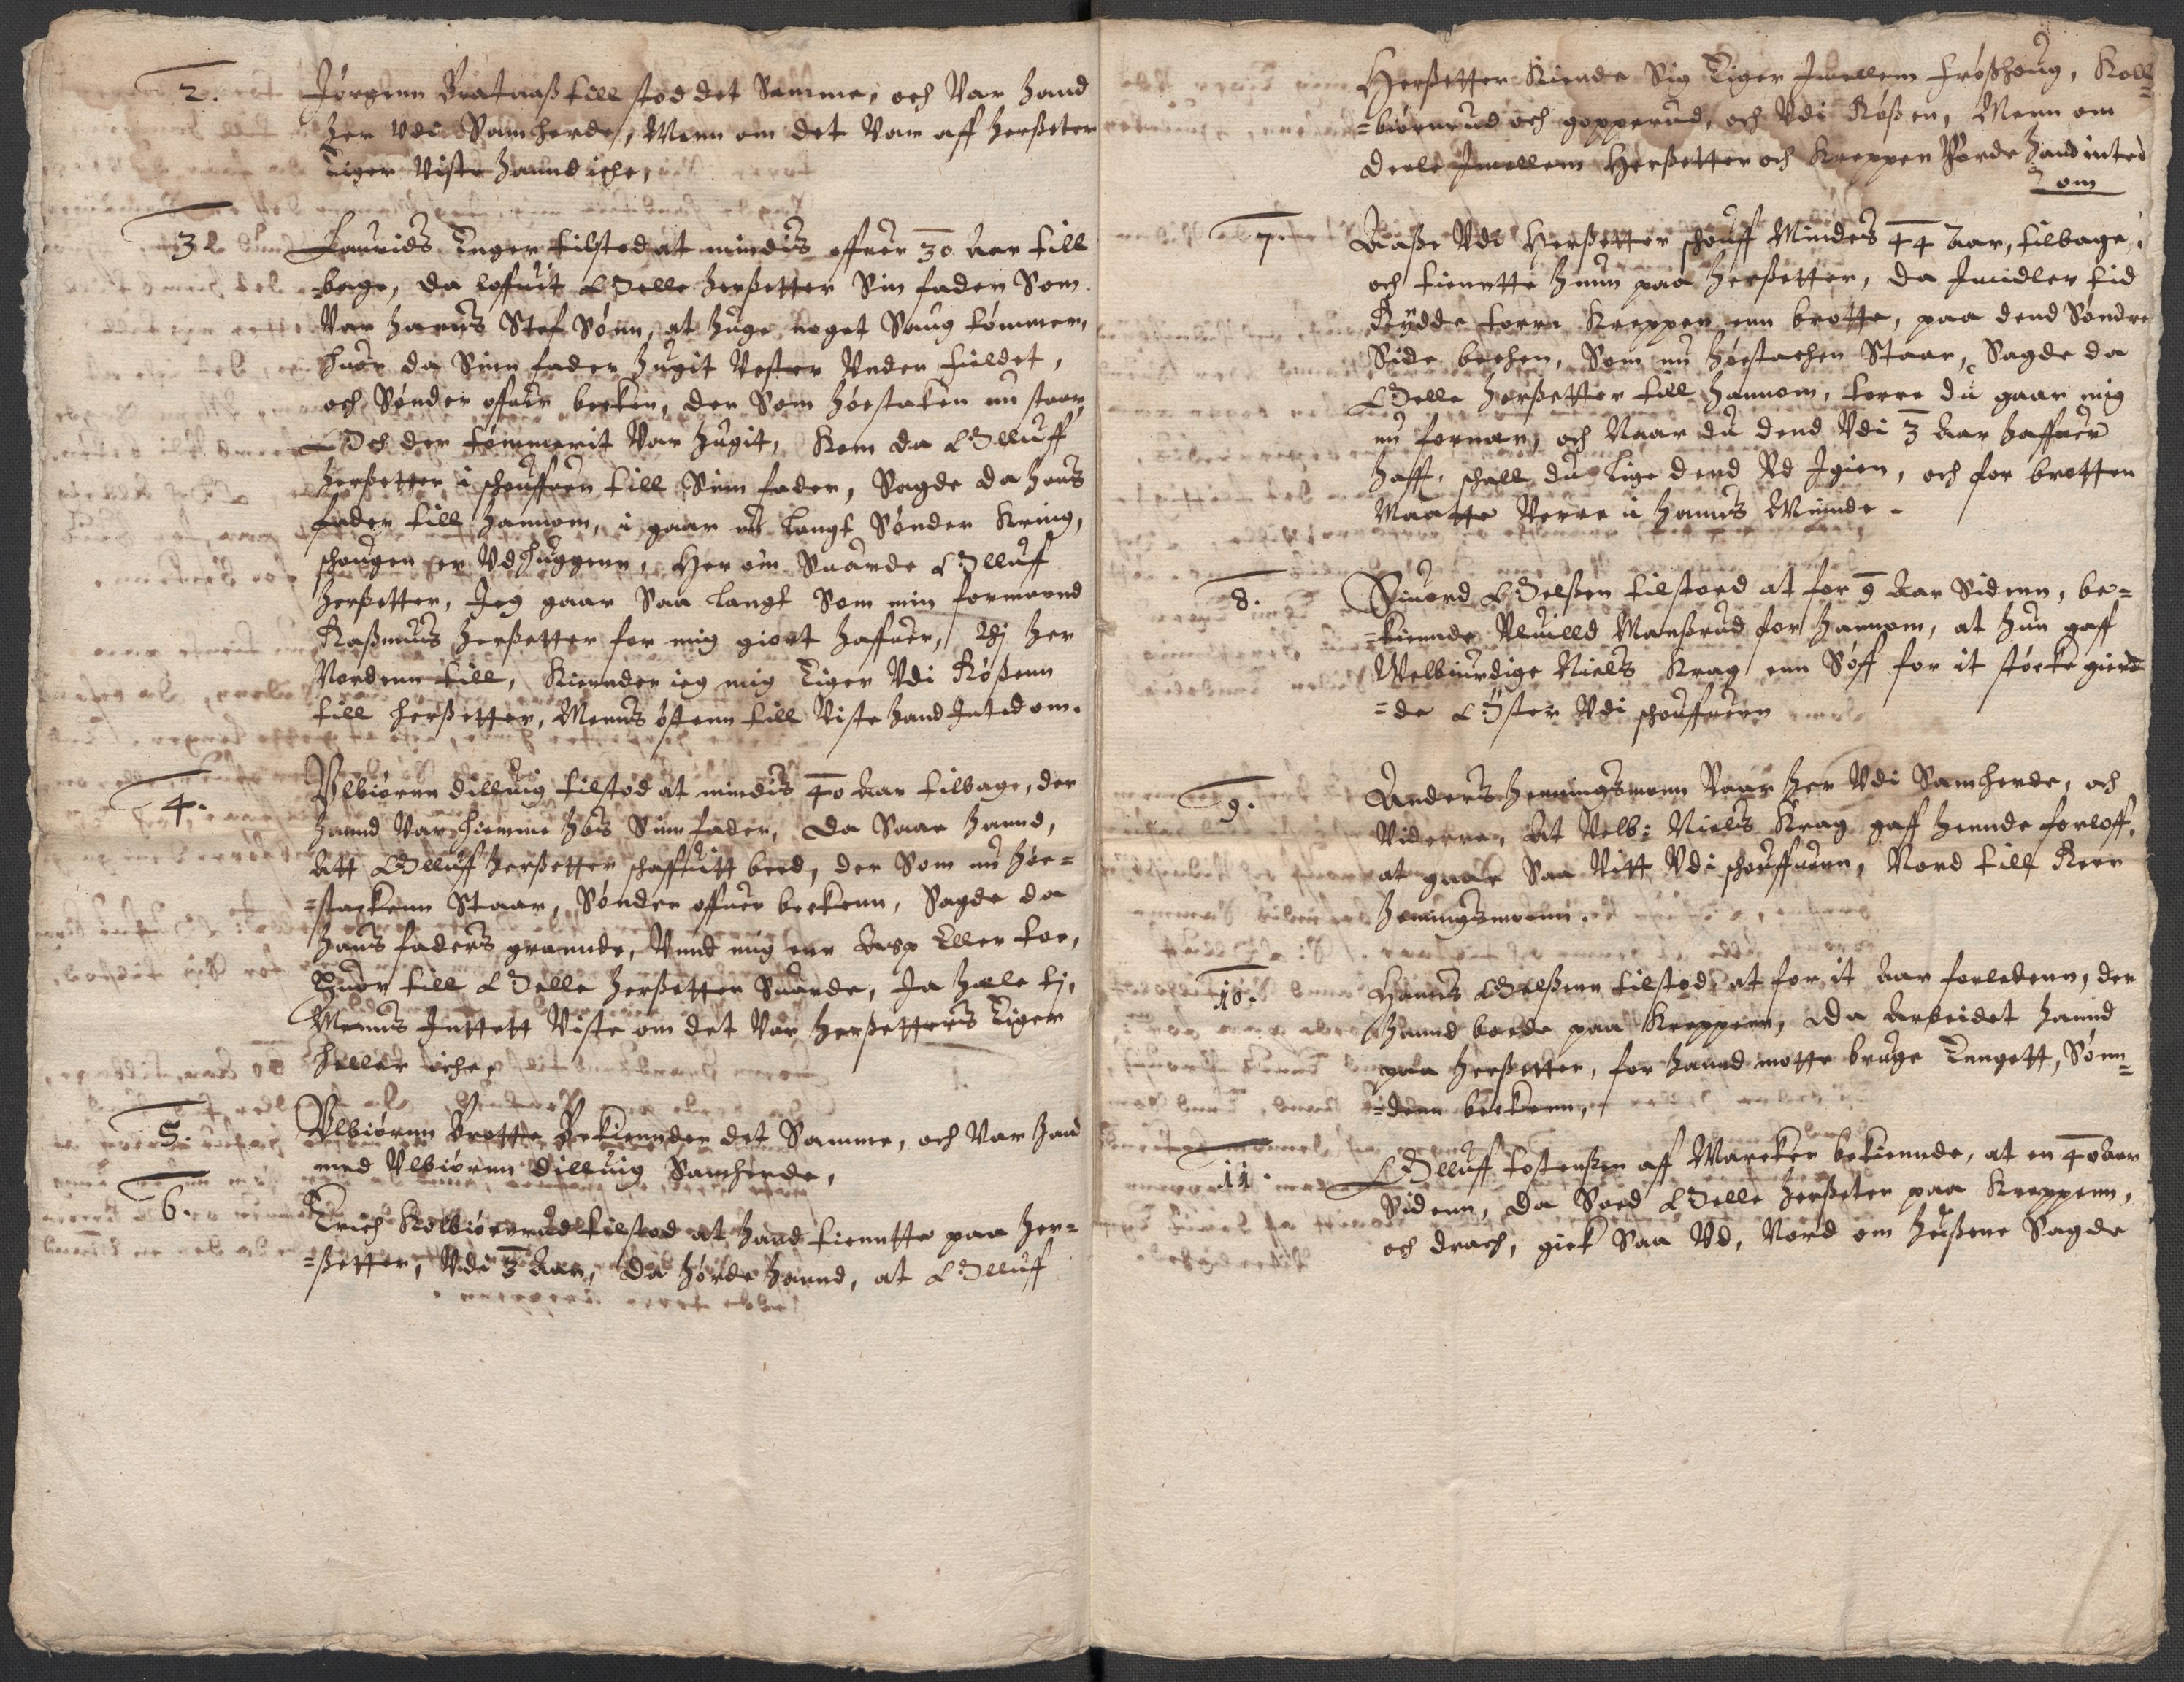 2. Jørgenn Brataass till stod det Samme, och Var hand
her udi Samherde, Menn om det Var aff herßeter
Eiger Viste hannd iche,
3. Laurids Enger tilstod at mindis offuer 30 Aar till
bage, da loffuit Olle herßetter Sin fader Som
Var hanns Stef Sønn, at huge noget Saug tømmer,
huor da Sinn fader hugit Vester Under fieldet,
och Sønder offuer becken, der Som høestaken nu staar,
Och der tømmerit Var hugit, Kom da Olluff
herßetter i schouffuen till Sinn fader, Sagde da hans
fader till hannom, i gaar langt Sønder Kring,
schougen er Udhuggenn, Her om Suarde Olluff
herßetter, Jeg gaar Saa langt Som min formannd
Raßmus herßetter for mig giort haffuer, her
Nordenn till, Kiennder ieg mig Eiger Udi Røßenn
till herßetter, Menns østenn till Viste hand Intedom.
4. Ulbiørnn dilluig tilstod at mindis 40 Aar tilbage, der
hannd Var hiemme hos Sinn fader, da Saae hannd,
Att Olluff herßetter schaffuitt beed, der Som nu høe=
=stackenn Staar, Sønder offuer beckenn, Sagde da
hans faders grannde, Unnd mig enn Asp Eller toe,
huor till Olle herßetter Suarde, Ja halle tj,
Menns Inttett Viste om det Var herßetters Eiger
heller iche,
5. Ulbiørnn Brotte Bekiennder det Samme, och Var hand
med Ulbiørnn dilluig Samherde,
6. Erich Kolbiørnrud tilstod at hand tienntte paa her=
=ßetter, Udi 3 Aar, da hørde hannd, at Olluff
Herßetter Kiende Sig Eiger Imellem frøßhoug, Koll=
=biørnrud och gopperud, och Udi Røßen, Menn om
deele Imellem Herßetter och Kreppen hørde hand inted
om
7. Aaße Udi Herßetter schouff Mindes 44 Aar, tilbage,
och tienntte hunn paa herßetter, da Imidler tid
Rydde torre Kreppen enn brotte, paa dend Søndre
Side bechen, Som nu høestachen Staar, Sagde da
Olle herßetter till hannom, torre du gaar mig
nu fornær, och Naar du dend Udi 3 Aar haffuer
hafft, schall du Lige dend Ud Igien, och for brotten
Maatte Verre i hanns Minnde.
8. Siuord Olßen tilstoed at for 9 Aar Sidenn, be=
=kiennde Manßrud for hannom, at hun gaff
Welbiurdige Niels Krag enn Søff for it støcke gierd=
=de Øster Udi schouffuen
9. Anders henningsmonn Vaar her Udi Samherde, och
Viderre, At Velb: Niels Krag gaff hennde forloff,
at gaae Saa Vitt Udi schouffuenn, Nord till Reer
henningsmonn.
10. Hanns Olßenn tilstod, at for it Aar forledenn, der
hannd boede paa Kreppenn, da Arbeidet hannd
paa herßetter, for hannd motte bruge Enngett, Sønn=
=denn beckenn,
11. Olluff tostenßen aff Marcker bekiennde, at en 40 Aar
Sidenn, da Soed Olle herßeter paa Kreppenn,
och drach, giek Saa Ud, Nord om hußene Sagde